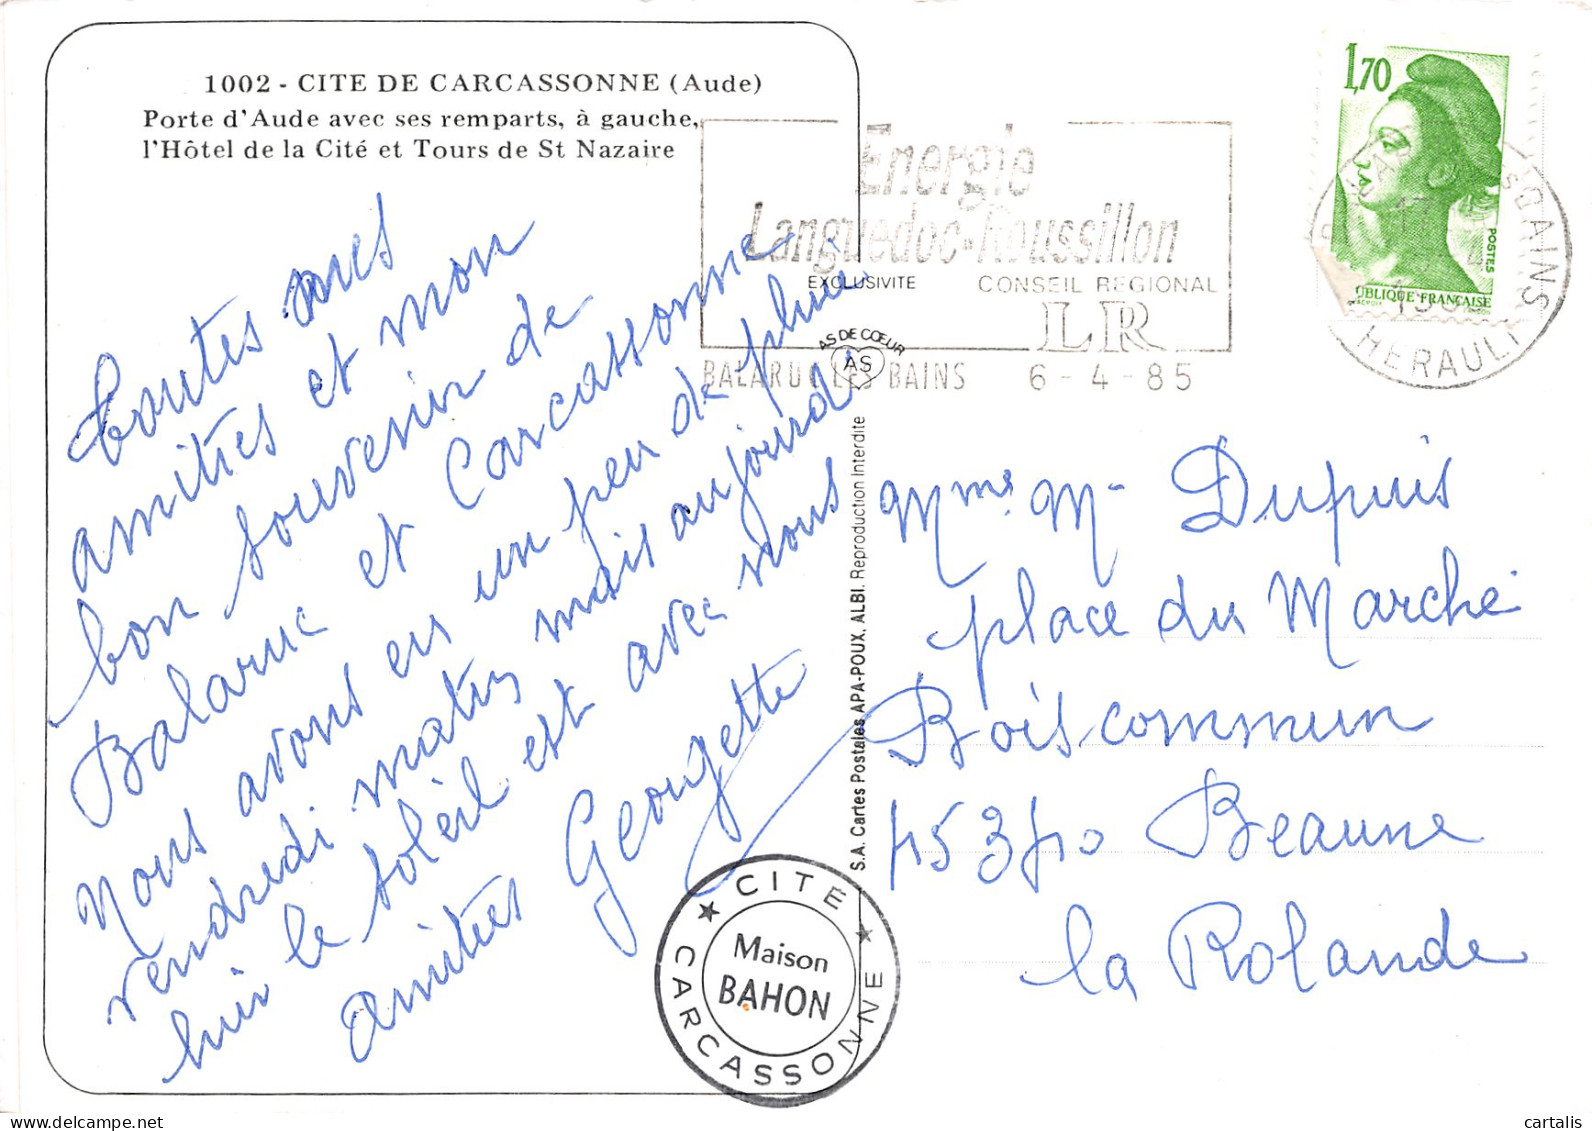 1002 - CITE DE CARCASSONNE (Aude)
Porte d'Aude avec ses remparts, à gauche,
l'Hôtel de la Cité et Tours de St Nazaire
Toutes mes
amitiés et mon
bon souvenir de
Balaruc et Carcassonne
Nous avons eu un peu de pluie
vendredi matin mais aujourd'
hui le soleil est avec nous
amitiés Georgette
Energie
Languedoc-Roussillon
EXCLUSIVITE CONSEIL REGIONAL
LR
BALARUC LES BAINS 6-4-85
AS DE CŒUR
AS
1,70
POSTES
UBLIQUE FRANÇAISE
17
BAINS
HERAULT
S.A. Cartes Postales APA-POUX, ALBI. Reproduction Interdite
Mme M- Dupuis
place du Marché
Boiscommun
45340 Beaune
la Rolande
CITÉ
CARCASSONNE
Maison
BAHON
cartalis